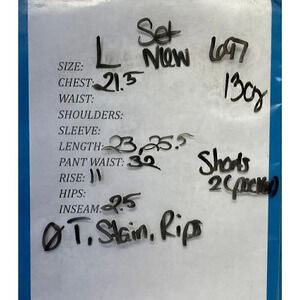 Set
SIZE: L New
CHEST: 21.5 13oz
WAIST:
SHOULDERS:
SLEEVE:
LENGTH: 23, 25.5
PANT WAIST: 32 Shorts
RISE: 11 2
HIPS:
INSEAM: 2.5
Ø T, Stain, Rips